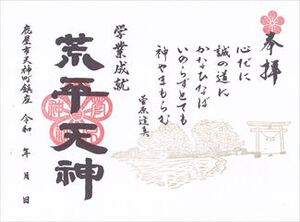 奉拝
心だに
誠の道に
かなひなば
いのらずとても
神やまもらむ
菅原道真
学業成就
荒平天神
鹿屋市天神町鎮座 令和 年 月 日